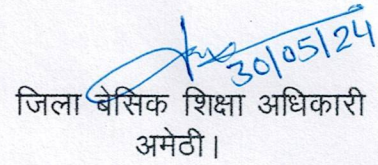 30/05/24
जिला बेसिक शिक्षा अधिकारी
अमेठी।